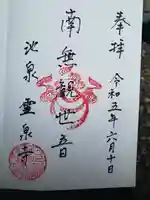 奉拝
令和五年六月十日
南無観世音
池泉
靈泉寺